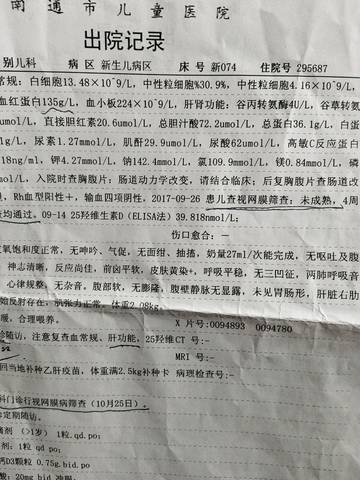 南通市儿童医院
出院记录
别儿科 病区 新生儿病区 床号 新074 住院号 295687
常规：白细胞13.48×10^9/L，中性粒细胞%30.9%，中性粒细胞4.16×10^9/L，
血红蛋白135g/L，血小板224×10^9/L，肝肾功能：谷丙转氨酶4U/L，谷草转氨
umol/L，直接胆红素20.6umol/L，总胆汁酸72.2umol/L，总蛋白36.1g/L，白蛋
g/L，尿素1.27mmol/L，肌酐29.9umol/L，尿酸62umol/L，高敏C反应蛋白
18ng/ml，钾4.27mmol/L，钠142.4mmol/L，氯109.9mmol/L，镁0.84mmol/L，磷
mol/L，入院时查胸腹片：肠道动力学改变，请结合临床；后复胸腹片查肠道改
，Rh血型阳性＋，输血四项阴性。2017-09-26 患儿查视网膜筛查：未成熟，4周
查均通过。09-14 25羟维生素D（ELISA法）39.818nmol/L；
伤口愈合：－
氧饱和度正常，无呻吟、气促，无面绀、抽搐，奶量27ml/次能完成，无呕吐及腹
神志清晰，反应尚佳，前囟平软，皮肤黄染+，呼吸平稳，无三凹征，两肺呼吸音
心律规整，无杂音，腹部软，无膨隆，腹壁静脉无显露，未见胃肠形，肝脏右肋
始反射存在，肌张力正常，体重2.08kg。
暖，合理喂养。 X 片号：0094893 0094780
诊随访，注意复查血常规、肝功能，25羟维 CT 号：
MRI 号：
回当地补种乙肝疫苗，体重满2.5kg补种卡 病理检查号：
科门诊行视网膜病筛查（10月25日）。
诊定期随访。
剂（>1岁） 1粒.qd.po；
1粒 qd po；
钙D3颗粒 0.75g.bid.po
酸：20mg bid 冲服